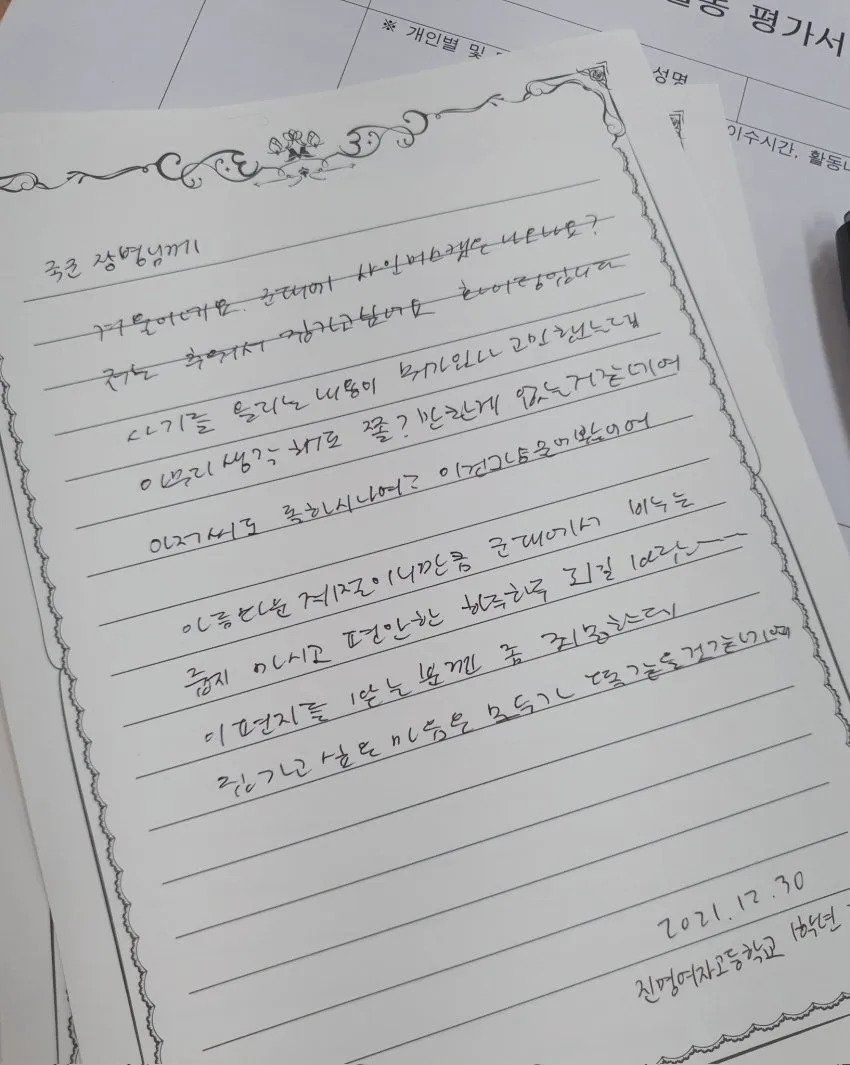 평가서
※ 개인별 및
성명
이수시간, 활동내
국군 장병님께
겨울이네요. 군대에 샤인머스캣은 나오나요?
저는 추워서 집가고싶네요 화이팅입니다
사기를 올리는 내용이 뭐가있나 고민했는데
아무리 생각해도 뾰?만한게 없는거같네여
아저씨도 톡하시나여?
아름다운 계절이니만큼 군대에서 비누는
줍지 마시고 편안한 하루하루 되길 바라
이 편지를 받는 분껜 좀 죄송한데
집가고 싶은 마음은 모두가 똑같을것같네여
2021.12.30
진명여자고등학교 1학년